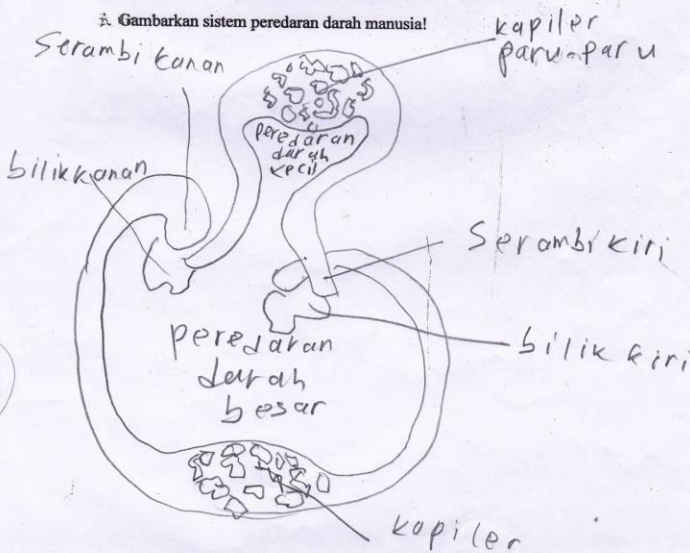 A. Gambarkan sistem peredaran darah manusia!
Serambi kanan
kapiler
paru-paru
peredaran
darah
kecil
bilik kanan
Serambi kiri
bilik kiri
peredaran
darah
besar
kapiler